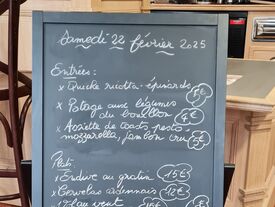 Samedi 22 février 2025
Entrées :
x Quiche ricotta-épinards 8€
x Potage aux légumes du bouillon 4€
x Assiette de toasts pesto
mozzarella, jambon cru
Plats :
x Endive au gratin 15€
x Cervelas ardennais 12€